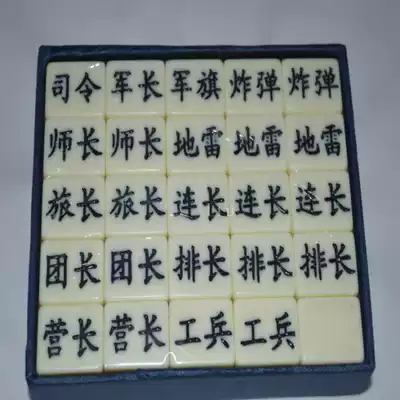 司令 军长 军旗 炸弹 炸弹
师长 师长 地雷 地雷 地雷
旅长 旅长 连长 连长 连长
团长 团长 排长 排长 排长
营长 营长 工兵 工兵